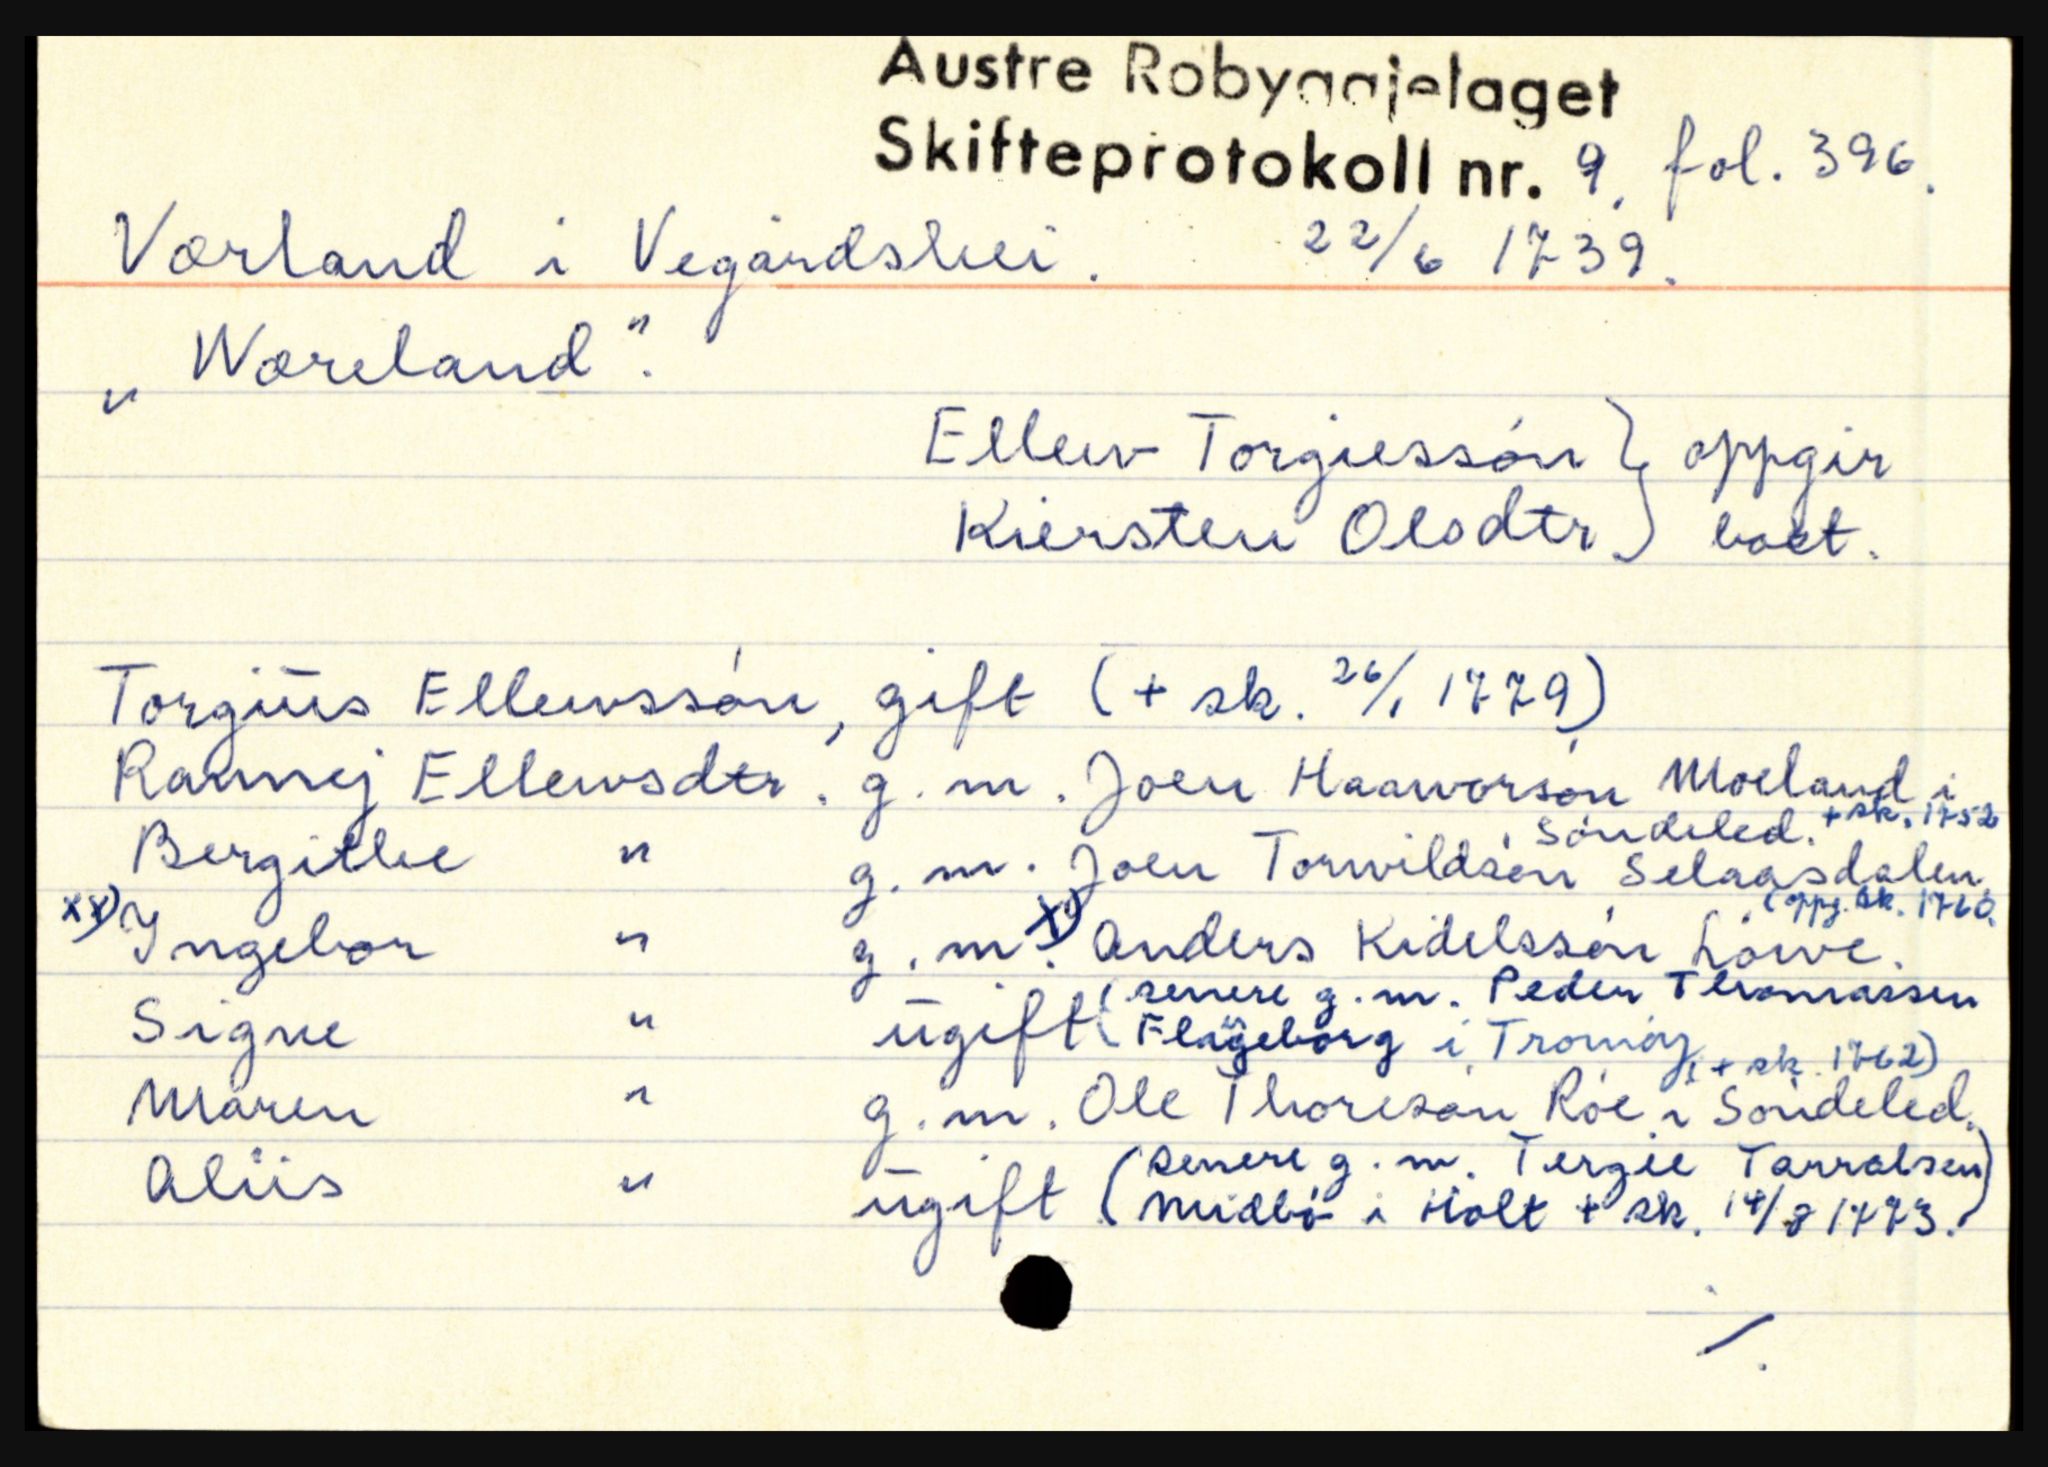 Austre Robyggjelaget
Skifteprotokoll nr. 9, fol. 396.
Værland i Vegårdshei. 22/6 1739.
„Wæreland".
Ellew Torgiessón } oppgir
Kiersten Olsdtr } boet.
Torgiüs Ellewssón, gift (+ sk. 26/1 1779)
Rannej Ellewsdtr. g.m. Joen Haaworsón Moeland i
Sóndeled. + sk. 1752
Bergithe " g.m. Joen Torwildsón Selaasdalen
(oppg. sk. 1760.
xx) Ingebor " g.m. x) Anders Kidelssón Lówe.
(senere g.m. Peder Thomassen
Signe " ügift (Flageborg i Tromóy, + sk. 1762)
Maren " g.m. Ole Thoresón Róe i Sóndeled.
(senere g.m. Tergie Tarralsen)
Aliis " ügift (Midbó i Holt + sk. 14/8 1773.)
./.